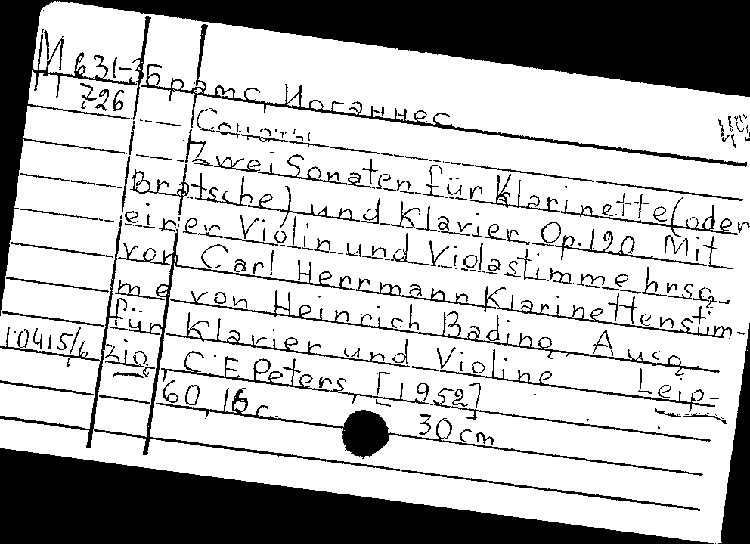 М в 31-3 Брамс, Иоганнес
726
Сонаты
Zwei Sonaten für Klarinette (oder
Bratsche) und Klavier Op. 120 Mit
einer Violin und Violastimme hrsg.
von Carl Herrmann Klarinettenstim-
me von Heinrich Bading. Ausg.
für Klavier und Violine Leip-
10415/6 zig, C. F. Peters, [1952]
60, 16 с. 30 cm